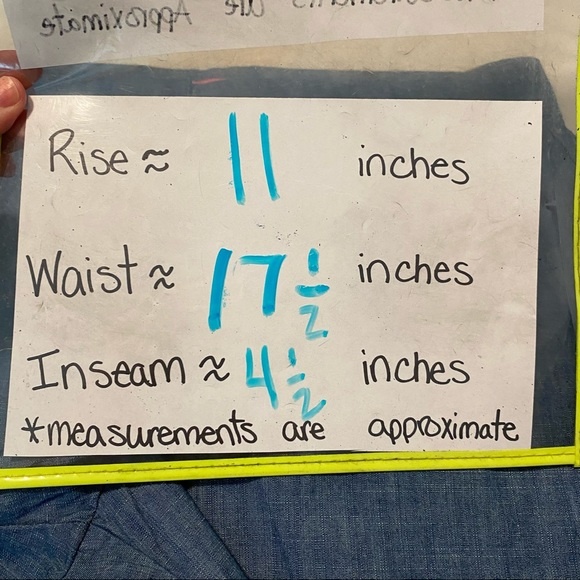 are Approximate
Rise ≈ 11 inches
Waist ≈ 17 1/2 inches
Inseam ≈ 4 1/2 inches
*measurements are approximate